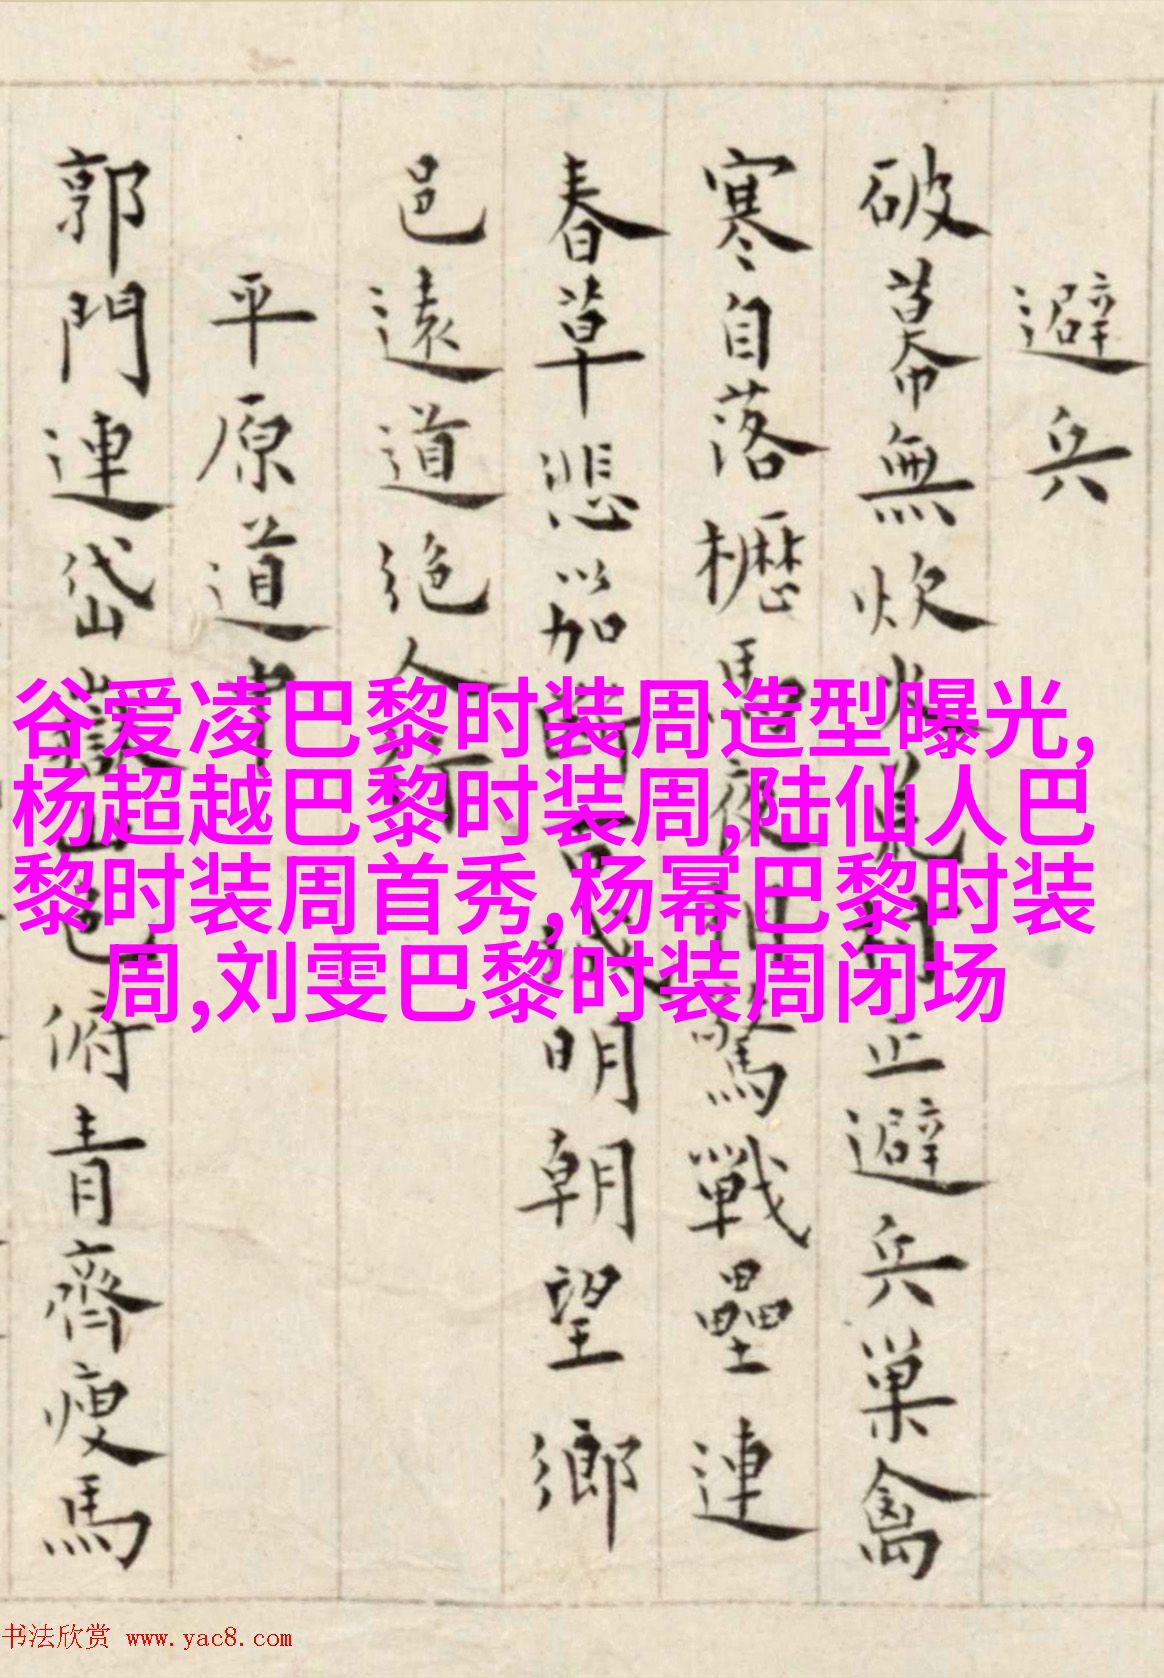 避兵
破幕無炊火見村正避兵巢禽
寒自落櫪馬夜相驚戰壘連
春草悲笳明朝望鄉
邑遠道絕人行
平原道中
郭門連岱嶽山色俯青齊瘦馬
谷爱凌巴黎时装周造型曝光,
杨超越巴黎时装周,陆仙人巴
黎时装周首秀,杨幂巴黎时装
周,刘雯巴黎时装周闭场
书法欣赏 www.yac8.com